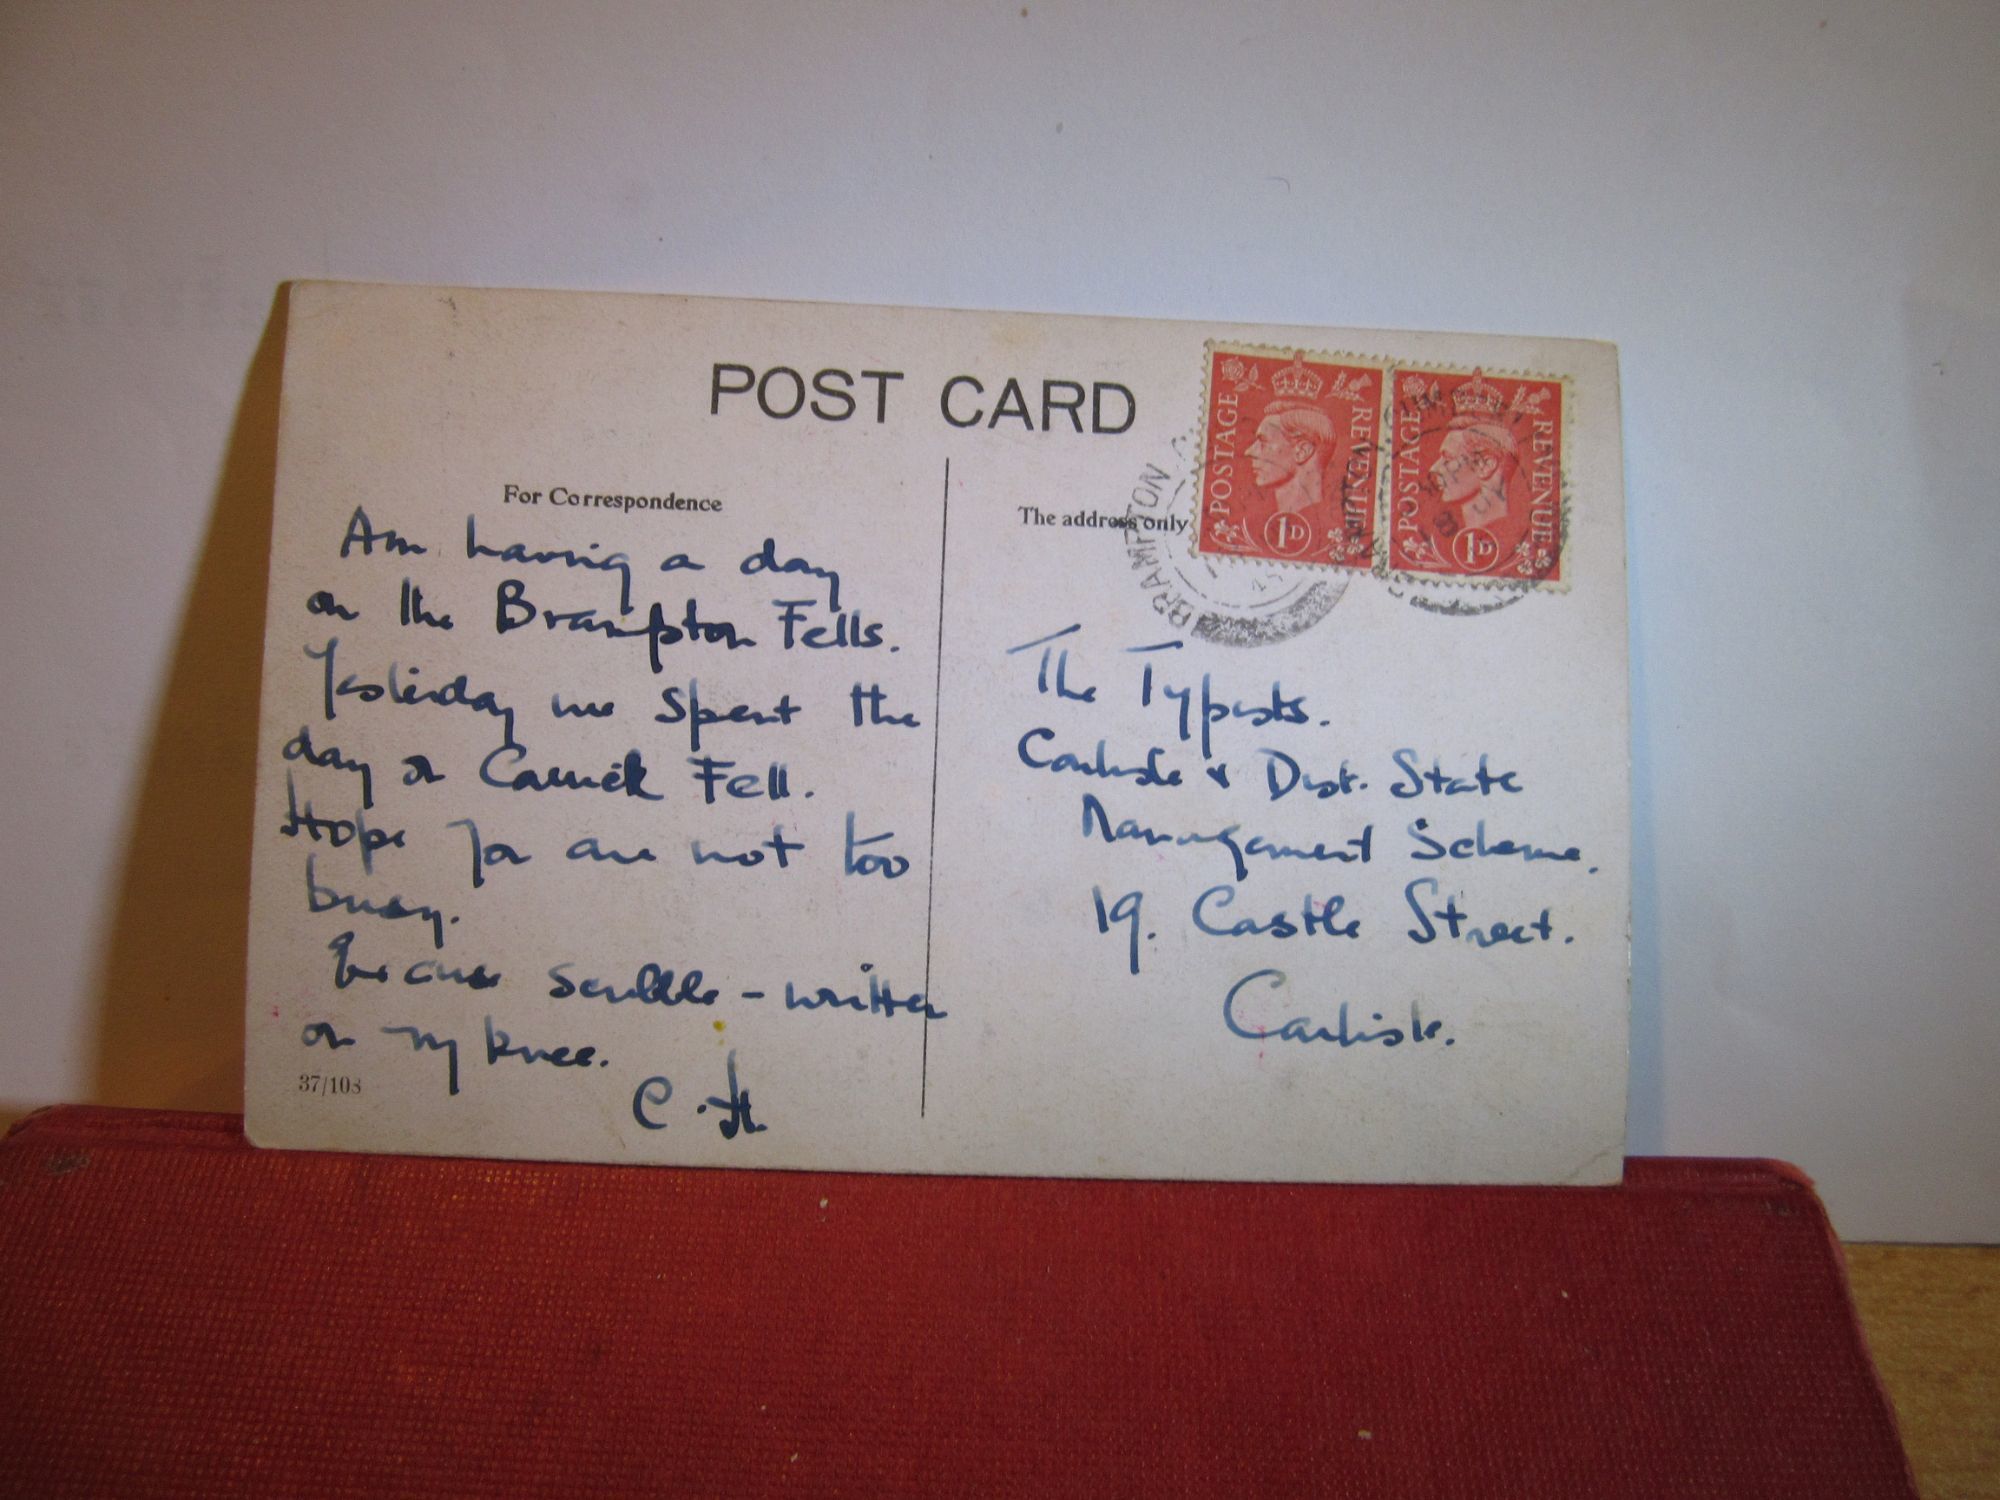 POST CARD
For Correspondence
Am having a day
on the Brampton Fells.
Yesterday we spent the
day on Carrick Fell.
Hope you are not too
busy.
Excuse scribble - written
on my knee.
C. H.
37/108
The address only
POSTAGE REVENUE
1D
POSTAGE REVENUE
1D
BRAMPTON
18 JY
The Typists.
Carlisle & Dist. State
Management Scheme.
19. Castle Street.
Carlisle.